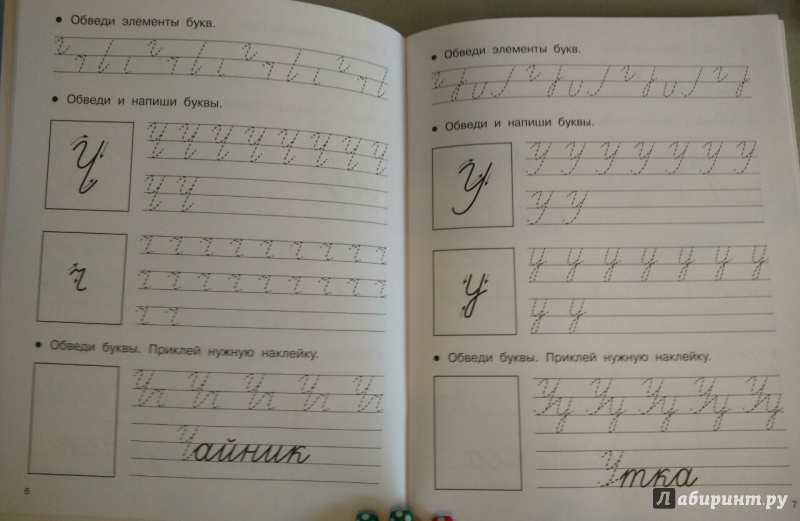 Обведи элементы букв.
Обведи и напиши буквы.
Ч Ч Ч Ч Ч Ч Ч Ч Ч
Ч Ч
ч ч ч ч ч ч ч ч ч ч
ч ч ч ч ч ч ч ч ч
ч ч
Обведи буквы. Приклей нужную наклейку.
Чч Чч Чч Чч Чч
Чайник
6
Обведи элементы букв.
Обведи и напиши буквы.
У У У У У У У У
У У
у у у у у у у у
у у
Обведи буквы. Приклей нужную наклейку.
Уу Уу Уу Уу Уу
Утка
7
Лабиринт.ру